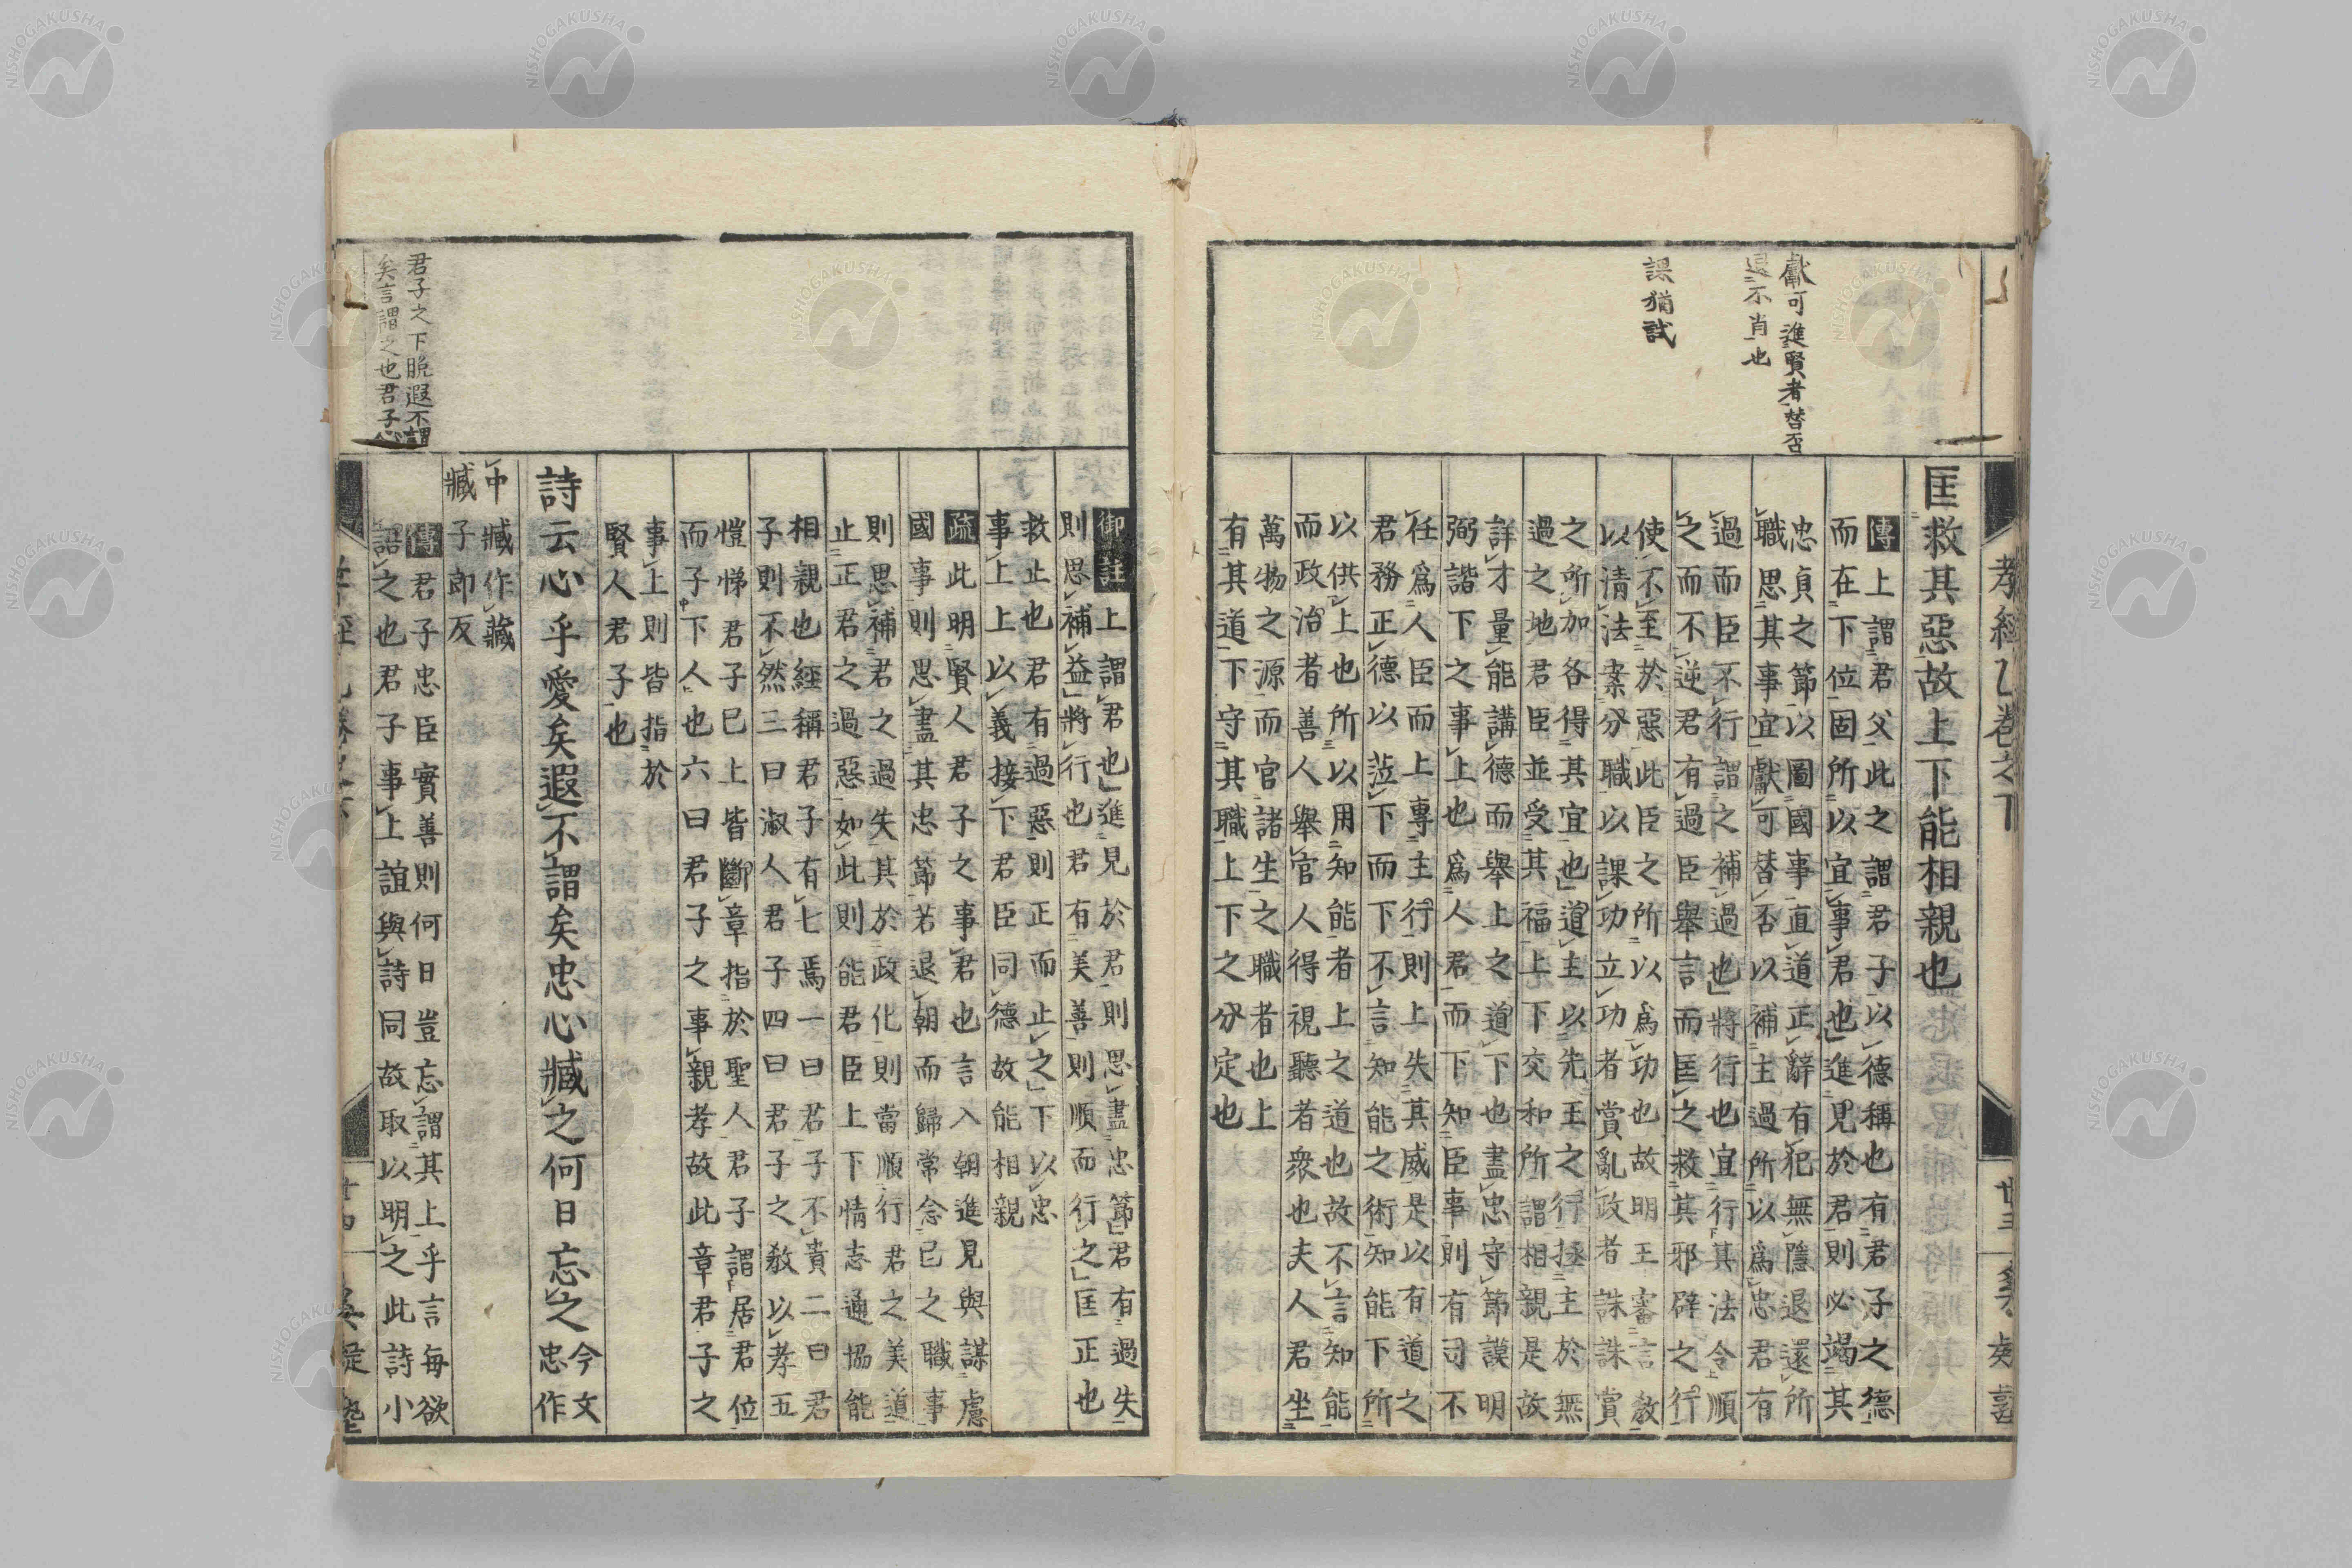 孝經 卷之下
廿三
匡救其惡故上下能相親也
傳上謂君父此之謂君子以德稱也有君子之德
而在下位固所以宜事君也進見於君則必竭其
忠貞之節以圖國事直道正辭有犯無隱退還所
職思其事宜獻可替否以補主過所以爲忠君有
過而臣不行謂之補過也將行也宜行其法令順
之而不逆君有過臣舉言而匡之救其邪辟之行
使不至於惡此臣之所以爲功也故明王審言敎
以清法案分職以課功立功者賞亂政者誅誅賞
之所加各得其宜也道主以先王之行拯主於無
過之地君臣並受其福上下交和所謂相親是故
詳才量能講德而舉上之道下也盡忠守節謨明
弼諧下之事上也爲人君而下知臣事則有司不
任爲人臣而上專主行則上失其威是以有道之
君務正德以蒞下而下不言知能之術知能下所
以供上也所以用知能者上之道也故不言知能
而政治者善人舉官人得視聽者衆也夫人君坐
萬物之源而官諸生之職者也上
有其道下守其職上下之分定也
獻可進賢者替否
退不肖也
課猶試
御註上謂君也進見於君則思盡忠節君有過失
則思補益將行也君有美善則順而行之匡正也
救止也君有過惡則正而止之下以忠
事上上以義接下君臣同德故能相親
疏此明賢人君子之事君也言入朝進見與謀慮
國事則思盡其忠節若退朝而歸常念已之職事
則思補君之過失其於政化則當順行君之美道
止正君之過惡如此則能君臣上下情志通協能
相親也經稱君子有七焉一曰君子不貴二曰君
子則不然三曰淑人君子四曰君子之敎以孝五
愷悌君子巳上皆斷章指於聖人君子謂居君位
而子下人也六曰君子之事親孝故此章君子之
事上則皆指於
賢人君子也
詩云心乎愛矣遐不謂矣忠心臧之何日忘之今文
忠作
中臧作藏
臧子郎反
傳君子忠臣實善則何日豈忘謂其上乎言每欲
誥之也君子事上誼與詩同故取以明之此詩小
君子之下脫遐不謂
矣言謂之也君子心
廿四